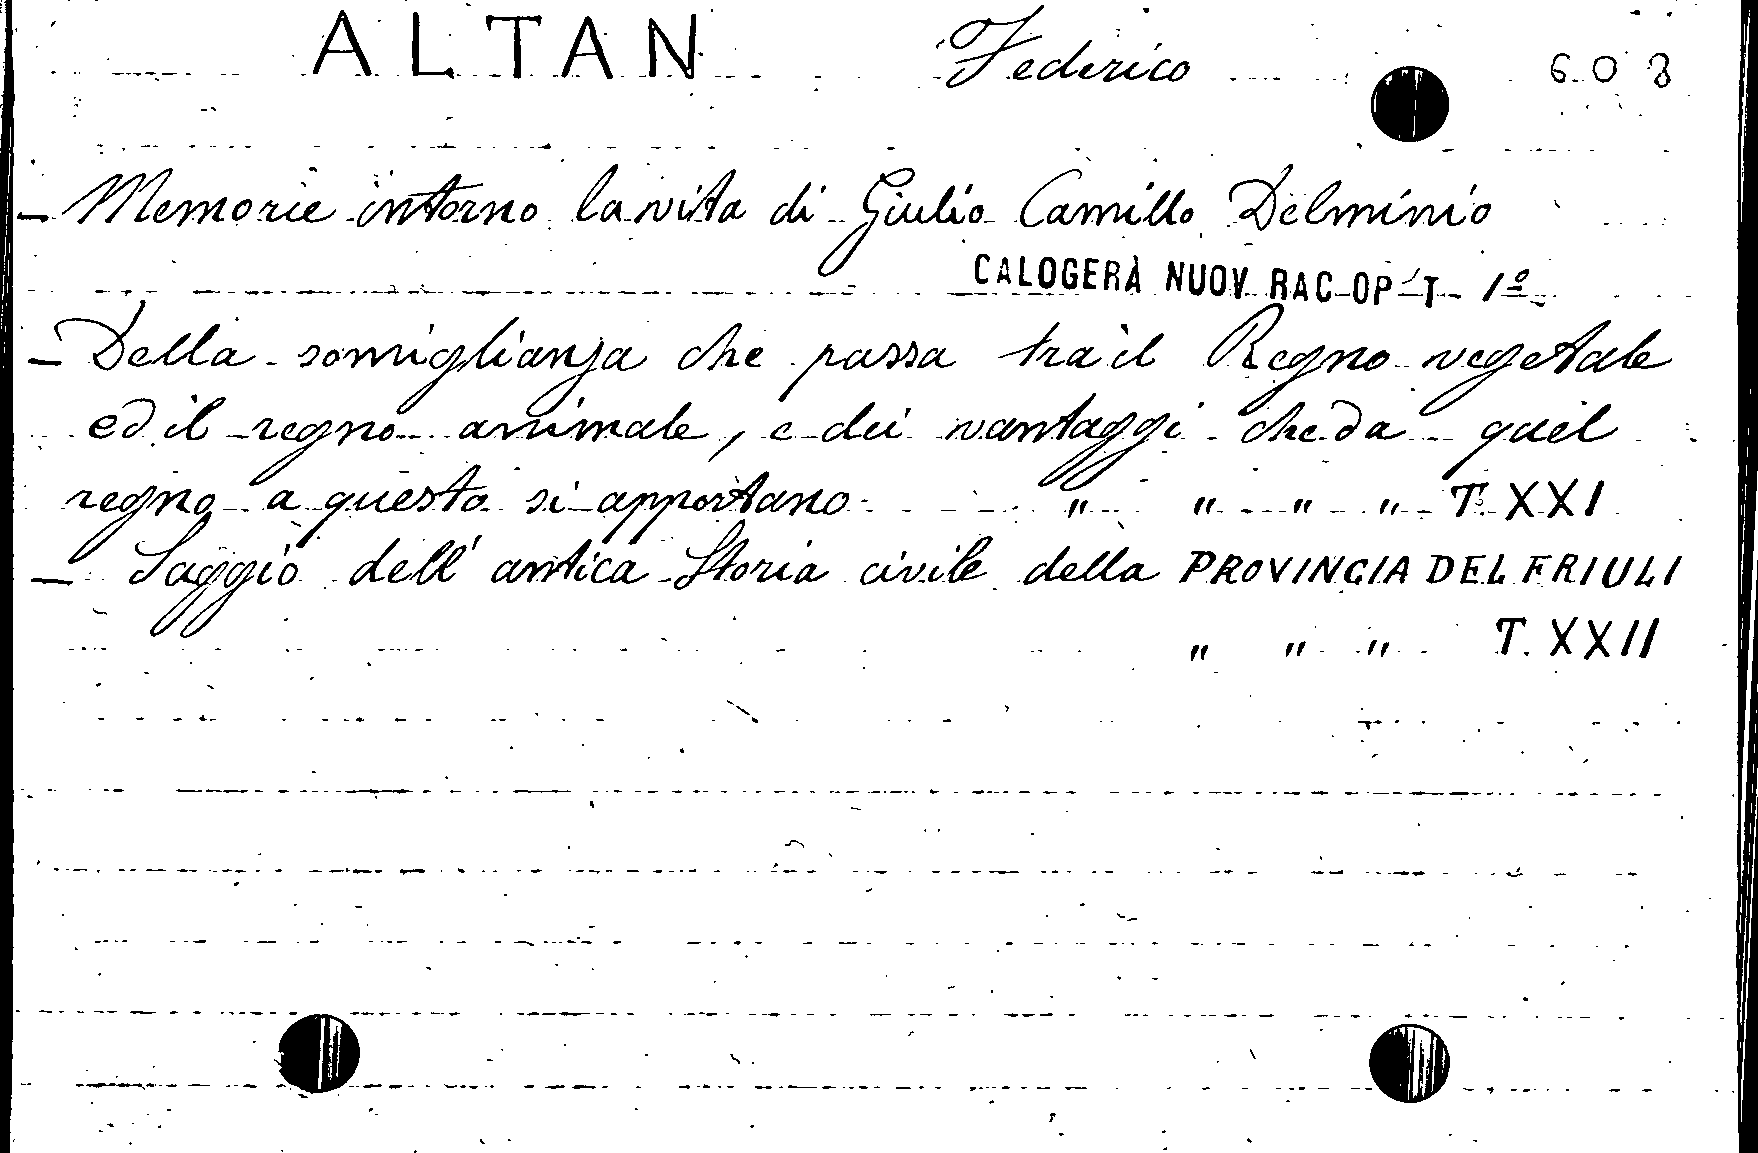 ALTAN Federico 608
- Memorie intorno la vita di Giulio Camillo Delminio
CALOGERÀ NUOV. RAC. OP. T. 1º
- Della somiglianza che passa tra il Regno vegetale
ed il regno animale, e dei vantaggi che da quel
regno a questo si apportano " " " " T. XXI
- Saggio dell' antica Storia civile della PROVINCIA DEL FRIULI
" " " T. XXII